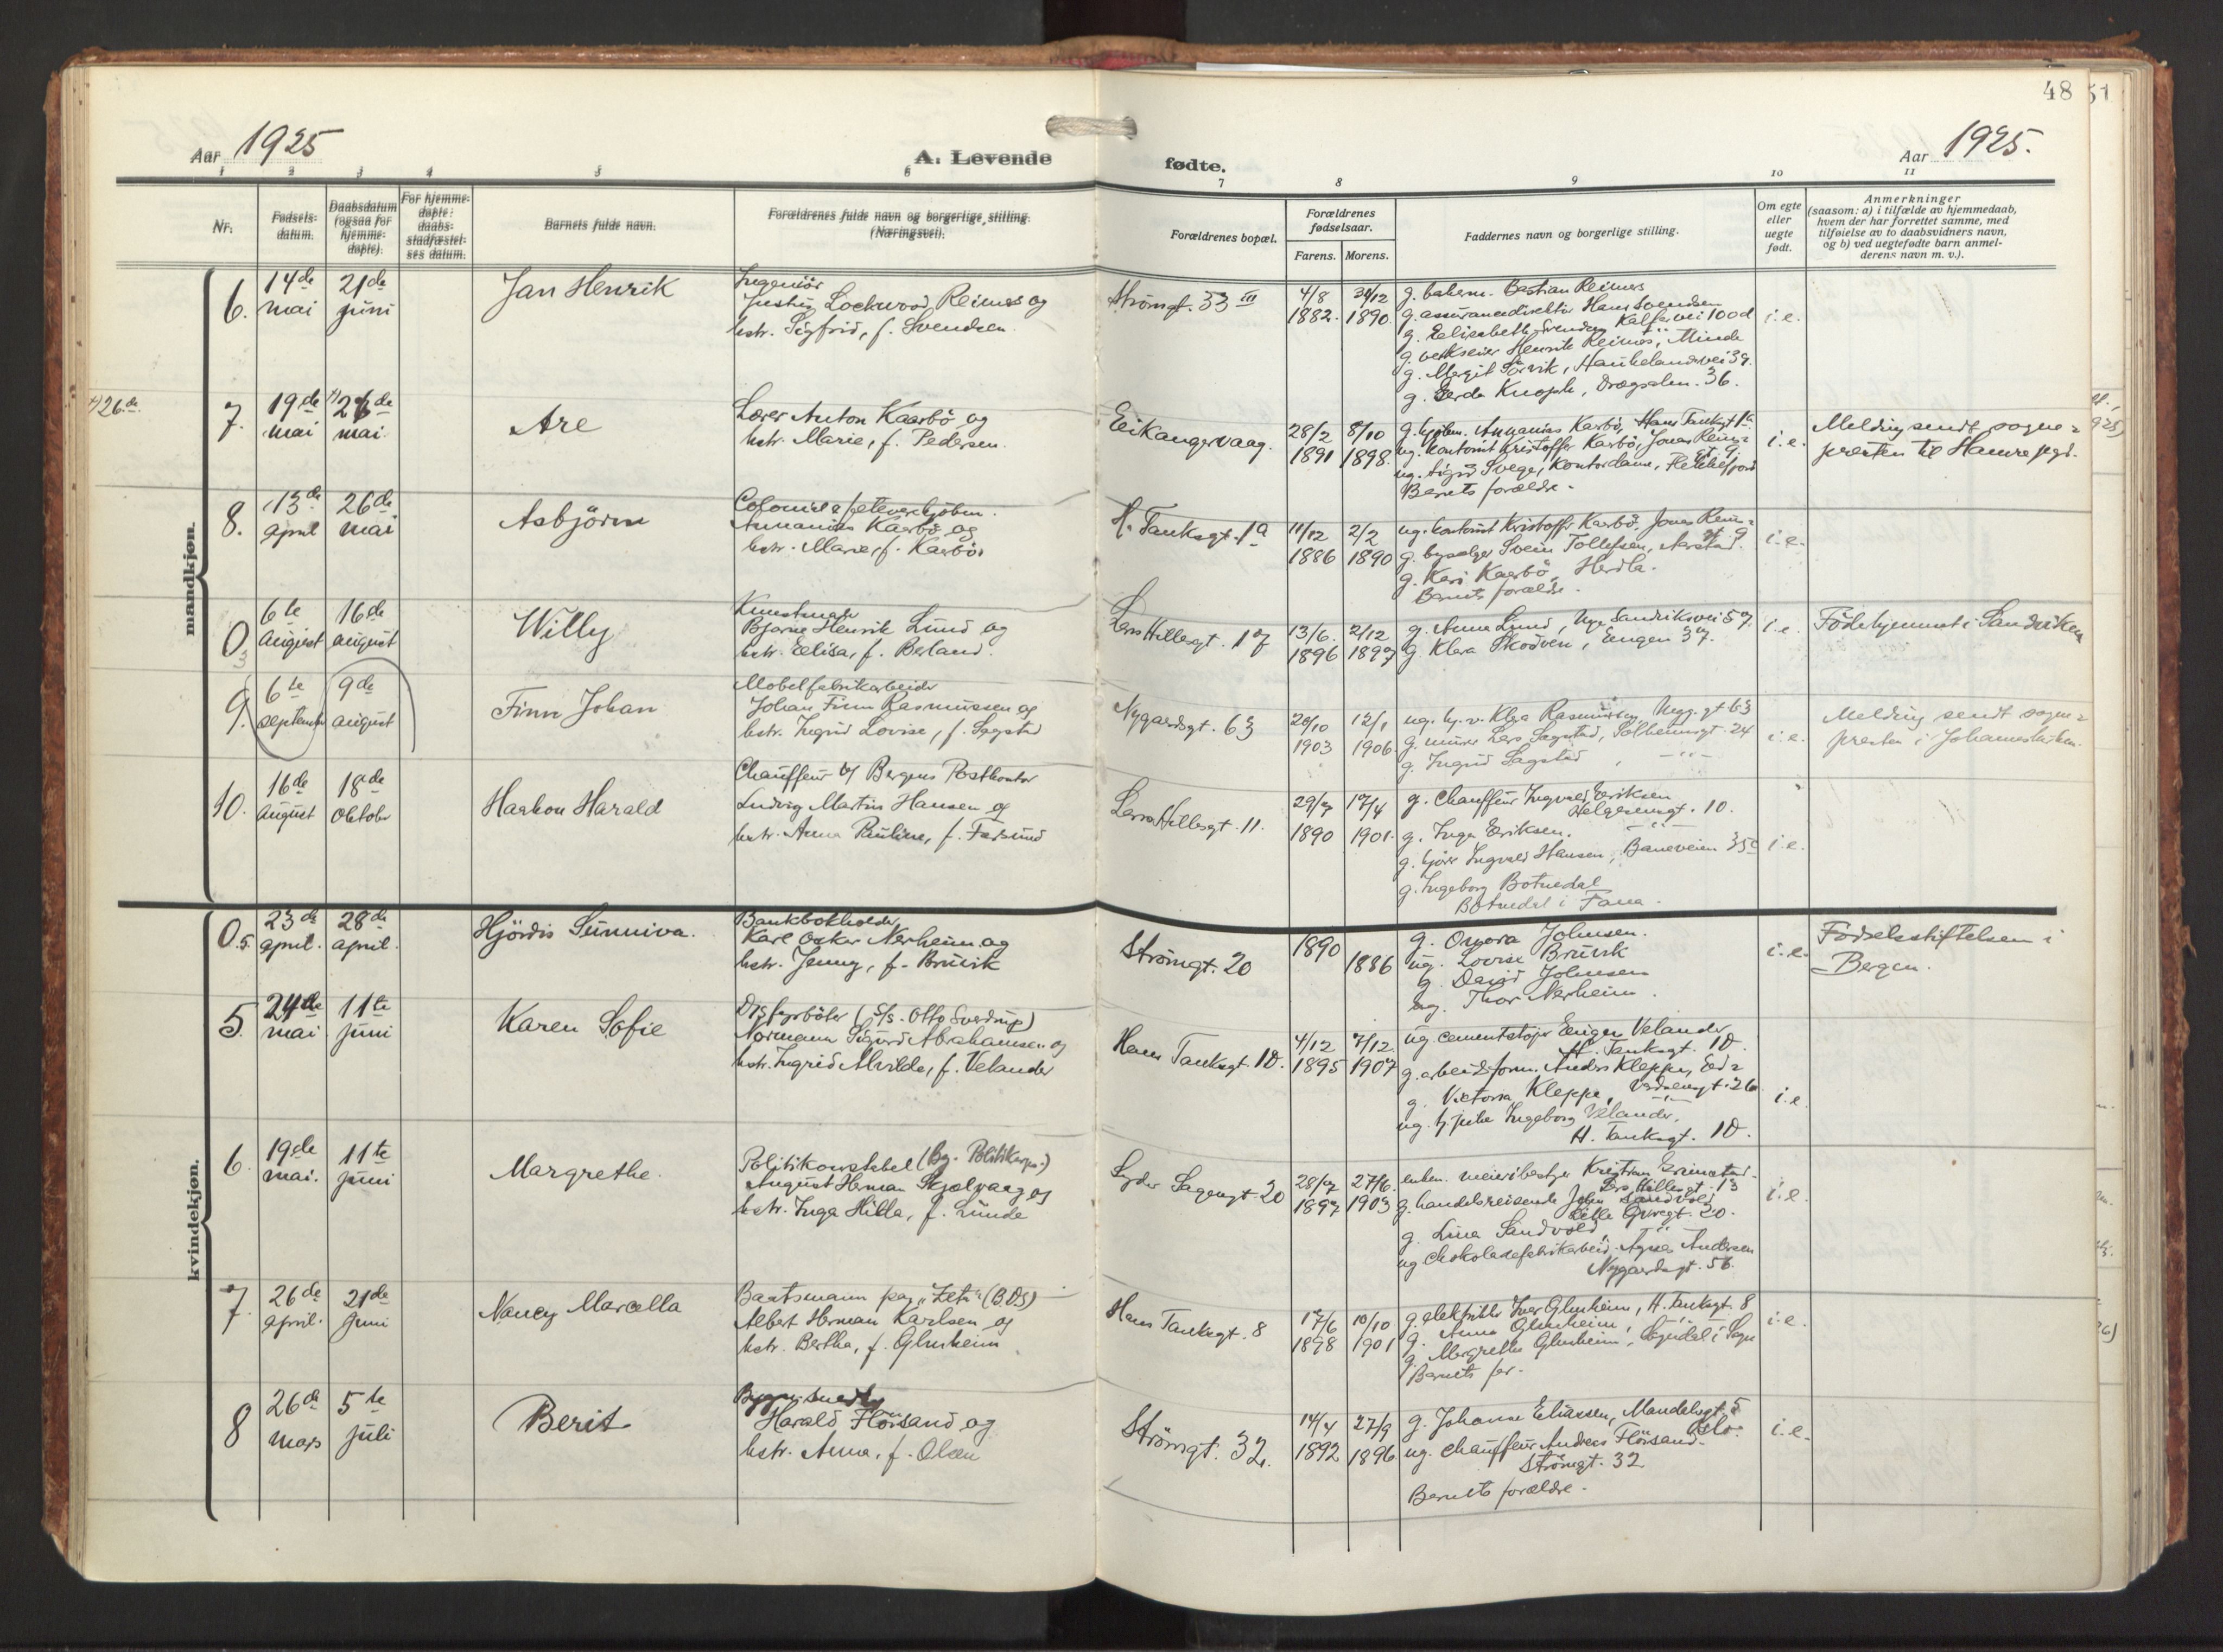 48
51
Aar 1925
A. Levende
fødte.
Aar 1925.
1 2 3 4 5 6
7 8 9 10 11
Nr.
Fødsels-
datum.
Daabsdatum
(ogsaa for
hjemme-
døpte).
For hjemme-
døpte:
daabs-
stadfæstel-
ses datum.
Barnets fulde navn.
Forældrenes fulde navn og borgerlige stilling.
(Næringsvei).
Forældrenes bopæl.
Forældrenes
fødselsaar.
Farens. Morens.
Faddernes navn og borgerlige stilling.
Om egte
eller
uegte
født.
Anmerkninger
(saasom: a) i tilfælde av hjemmedaab,
hvem der har forrettet samme, med
tilføielse av to daabsvidners navn,
og b) ved uegtefødte barn anmel-
derens navn m. v.).
mandkjøn.
6.
14de
mai
21de
juni
Jan Henrik
Ingeniør
Justus Lockwood Reimers og
hstr. Sigfrid, f. Svendsen.
Strömgt. 33 III
4/8
1882.
31/12
1890.
g. bakerm. Bastian Reimers
g. assurancedirektör Hans Svendsen
g. Elisabeth Svendsen Kalfarvei 100d
g. verkseier Henrik Reimers, Minde
g. Margit Sörvik, Haukelandsvei 39.
g. Gerda Knoph, Dragsalm. 36.
i. e.
x) 26.de.
7.
19de
mai
x) 26de
mai.
Are
Lærer Anton Kaarbö og
hstr. Marie, f. Pedersen.
Eikangervaag.
28/2
1891
8/10
1898.
g. kjöbm. Annanias Karbö, Hans Tanksgt 1a
ug. kontorist Kristoffer Karbö, Jonas Reins=
gt. 9.
ug. Sigrid Svege, Kontordame, Flekkefjord
Barnets forældre.
i. e.
Melding sendt sogne=
presten til Hamre pgd.
8.
13de
april
26de
mai
Asbjörn
Colonial & fetevarekjöbm.
Annanias Kaarbö og
hstr. Marie, f. Kaarbö.
H. Tanksgt. 1a
11/12
1886
2/2
1890
ug. kontorist Kristoffer Kaarbö, Jonas Reins=
gt. 9
g. bysælger Svein Tollefsen, Aarstad.
g. Kari Kaarbö, Herdla.
Barnets forældre.
i. e.
0
3
6te
august
16de
august
Willy
Kunstmaler
Bjarne Henrik Lund og
hstr. Elisa, f. Berland.
Lars Hillesgt. 17
13/6.
1896
2/12
1897
g. Anna Lund, Nye Sandviksvei 57.
g. Klara Skodven, Engen 37.
i. e.
Födehjemmet i Sandviken
9.
6te
september
9de
august
Finn Johan
Mobelfabrikarbeider
Johan Finn Rasmussen og
hstr. Ingrid Lovise, f. Sagstad
Nygaardsgt. 63
20/10
1903
12/1
1906.
ug. hj. v. Klara Rasmussen, Nygg. gt 63
g. murer Lars Sagstad, Solheimsgt. 24
g. Ingrid Sagstad, — " —
i. e.
Melding sendt sogne=
presten i Johanneskirken.
10.
16de
august
18de
oktober
Haakon Harald
Chauffeur v/ Bergens Postkontor
Ludvig Martin Hansen og
hstr. Anna Pauline, f. Farsund
Lars Hillesgt. 11.
29/7
1890
17/4
1901.
g. Chauffeur Ingvald Eriksen
Helgesensgt. 10.
g. Inga Eriksen. — " —
g. kjörer Ingvald Hansen, Baneveien 35c
g. Ingeborg Botnedal
Botnedal i Fana.
i. e.
kvindekjøn.
0
5.
23de
april.
28de
april.
Hjördis Sunniva.
Bankbokholder
Karl Oskar Nerheim og
hstr. Jenny, f. Bruvik
Strömgt. 20
1890
1886
g. Omora Johnsen.
ug. Lovise Bruvik
g. David Johnsen
ug. Thor Nerheim.
i. e.
Födselsstiftelsen i
Bergen.
5.
24de
mai
11te
juni
Karen Sofie
D/s fyrböter (S/s. Otto Sverdrup)
Normann Sigurd Abrahamsen og
hstr. Ingrid Alvilde, f. Velander
Hans Tanksgt. 10.
4/12
1895
7/12.
1907
ug. cementstöper Eugen Velander
H. Tanksgt. 10.
g. arbeidsform. Anders Kleppe, Ed=
vardsensgt. 26
g. Victoria Kleppe, — " —
ug. hj. pike Ingeborg Velander,
H. Tanksgt. 10.
i. e.
6.
19de
mai.
11te
juni
Margrethe.
Politikonstabel (Bg. Politikorps.)
August Herman Skjælvaag og
hstr. Inga Hilda, f. Lunde
Lyder Sagensgt. 20
28/7
1897
27/6.
1903
enkem. meieribestyr Kristian Grimstad
Lars Hillesgt. 13
g. handelsreisende John Sandvold
Lille Övregt. 20.
g. Lina Sandvold, "
ug chokoladefabrikarbeid. Agnes Andersen
Nygaardsgt. 56.
i. e.
7.
26de
april.
21de
juni
Nancy Marcella
Baatsmann paa "Zeta" (B.D.S)
Albert Herman Karlsen og
hstr. Bertha, f. Glenheim
Hans Tanksgt. 8
17/6
1898
10/10
1901
g. elektriker Iver Glenheim, H. Tanksgt. 8
g. Anna Glenheim, — " —
g. Margrethe Glenheim, Sogndal i Sogn
Barnets far.
i. e.
8
26de
mars
5te
juli
Berit
Harald Flörsand og
hstr. Anna, f. Olsen
Strömgt. 32.
14/4
1892
27/9
1896.
g. Johanne Eliassen, Mandalsgt. 5
Oslo.
ug. chauffeur Andreas Flörsand.
Strömgt. 32
Barnets forældre.
i. e.